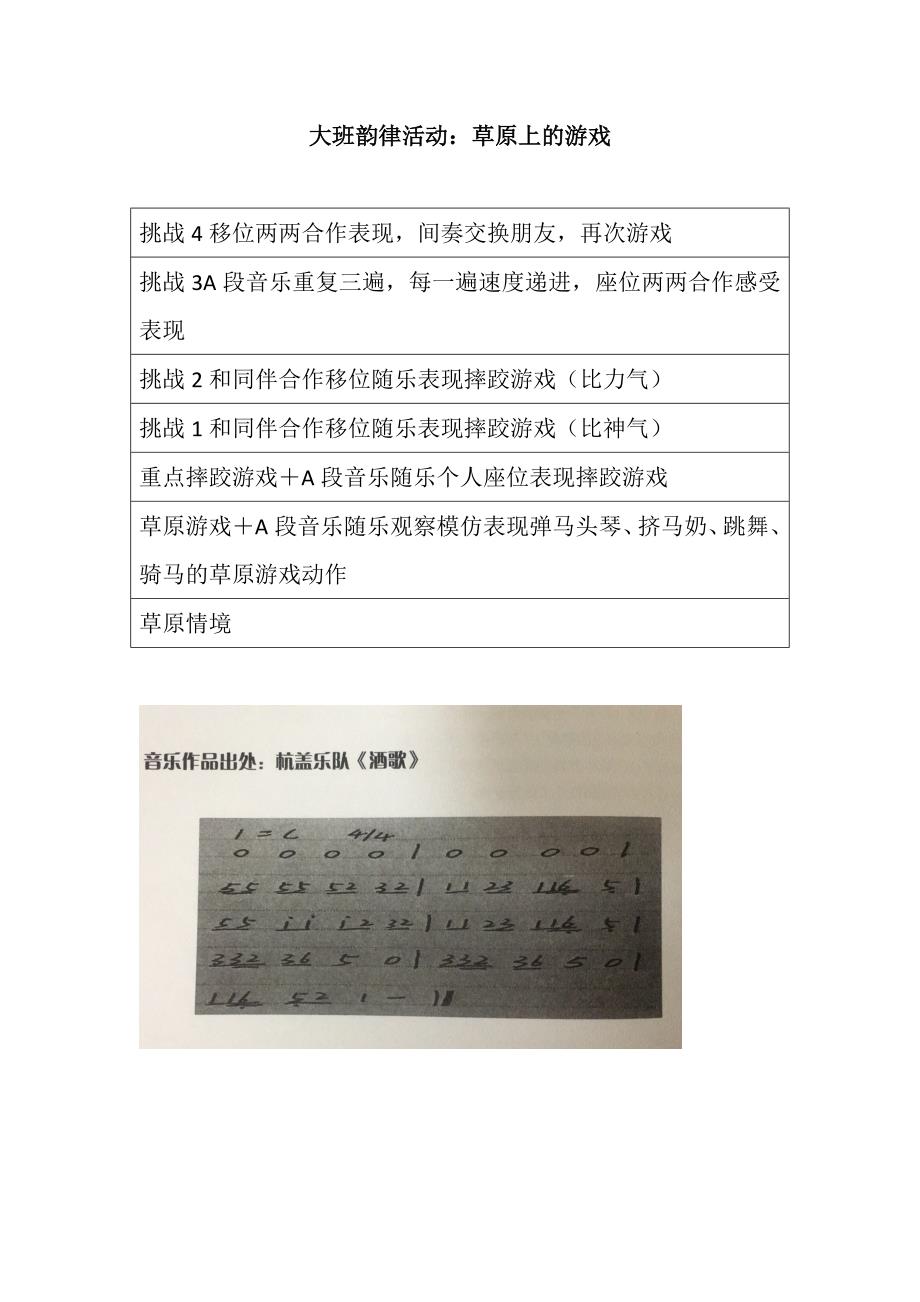 大班韵律活动：草原上的游戏
挑战 4 移位两两合作表现，间奏交换朋友，再次游戏
挑战 3A 段音乐重复三遍，每一遍速度递进，座位两两合作感受
表现
挑战 2 和同伴合作移位随乐表现摔跤游戏（比力气）
挑战 1 和同伴合作移位随乐表现摔跤游戏（比神气）
重点摔跤游戏＋A 段音乐随乐个人座位表现摔跤游戏
草原游戏＋A 段音乐随乐观察模仿表现弹马头琴、挤马奶、跳舞、
骑马的草原游戏动作
草原情境
音乐作品出处：杭盖乐队《酒歌》
1 = C 4/4
0 0 0 0 | 0 0 0 0 |
55 55 52 32 | 11 23 116 5 |
55 i i i 2 32 | 11 23 116 5 |
332 36 5 0 | 332 36 5 0 |
116 52 1 — ||